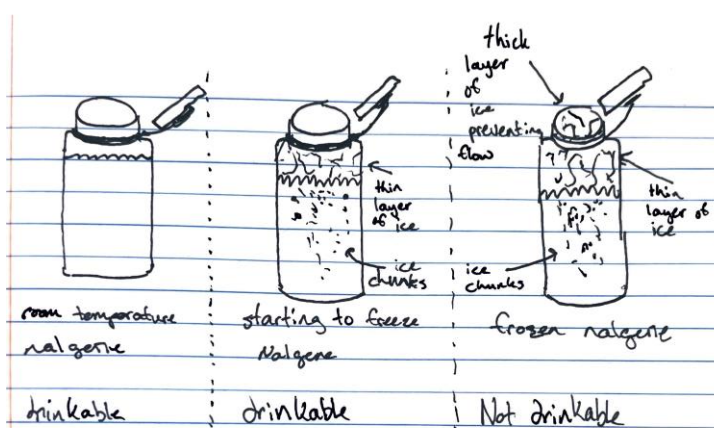 room temperature
nalgene
drinkable
thin
layer
of ice
ice
chunks
starting to freeze
Nalgene
drinkable
thick
layer
of
ice
preventing
flow
thin
layer of
ice
ice
chunks
frozen nalgene
Not drinkable